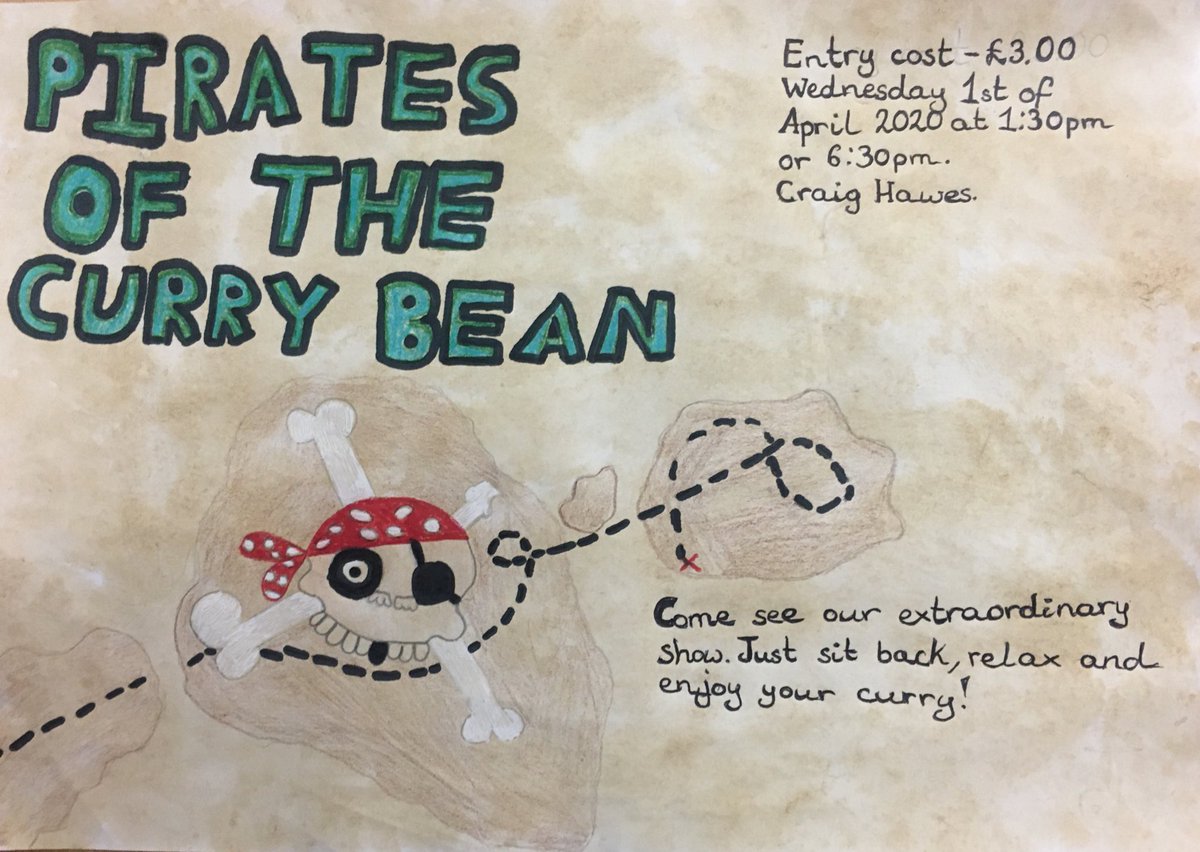 PIRATES
OF THE
CURRY BEAN
Entry cost - £3.00
Wednesday 1st of
April 2020 at 1:30pm
or 6:30pm.
Craig Hawes.
Come see our extraordinary
show. Just sit back, relax and
enjoy your curry!